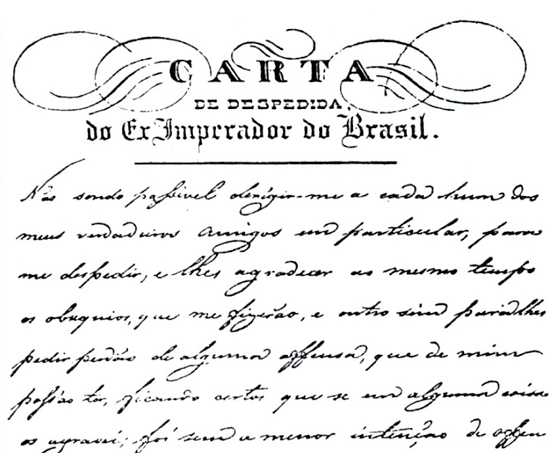 CARTA
DE DESPEDIDA,
do Ex Imperador do Brasil.
Não sendo possivel derigir-me a cada hum dos
meus verdadeiros amigos em particular, para
me despedir, e lhes agradecer ao mesmo tempo
os obsequios, que me fizerão, e outro sim para lhes
pedir perdão de alguma offensa, que de mim
possão ter, ficando certos que se em alguma coisa
os agravei, foi sem a menor intenção de offen